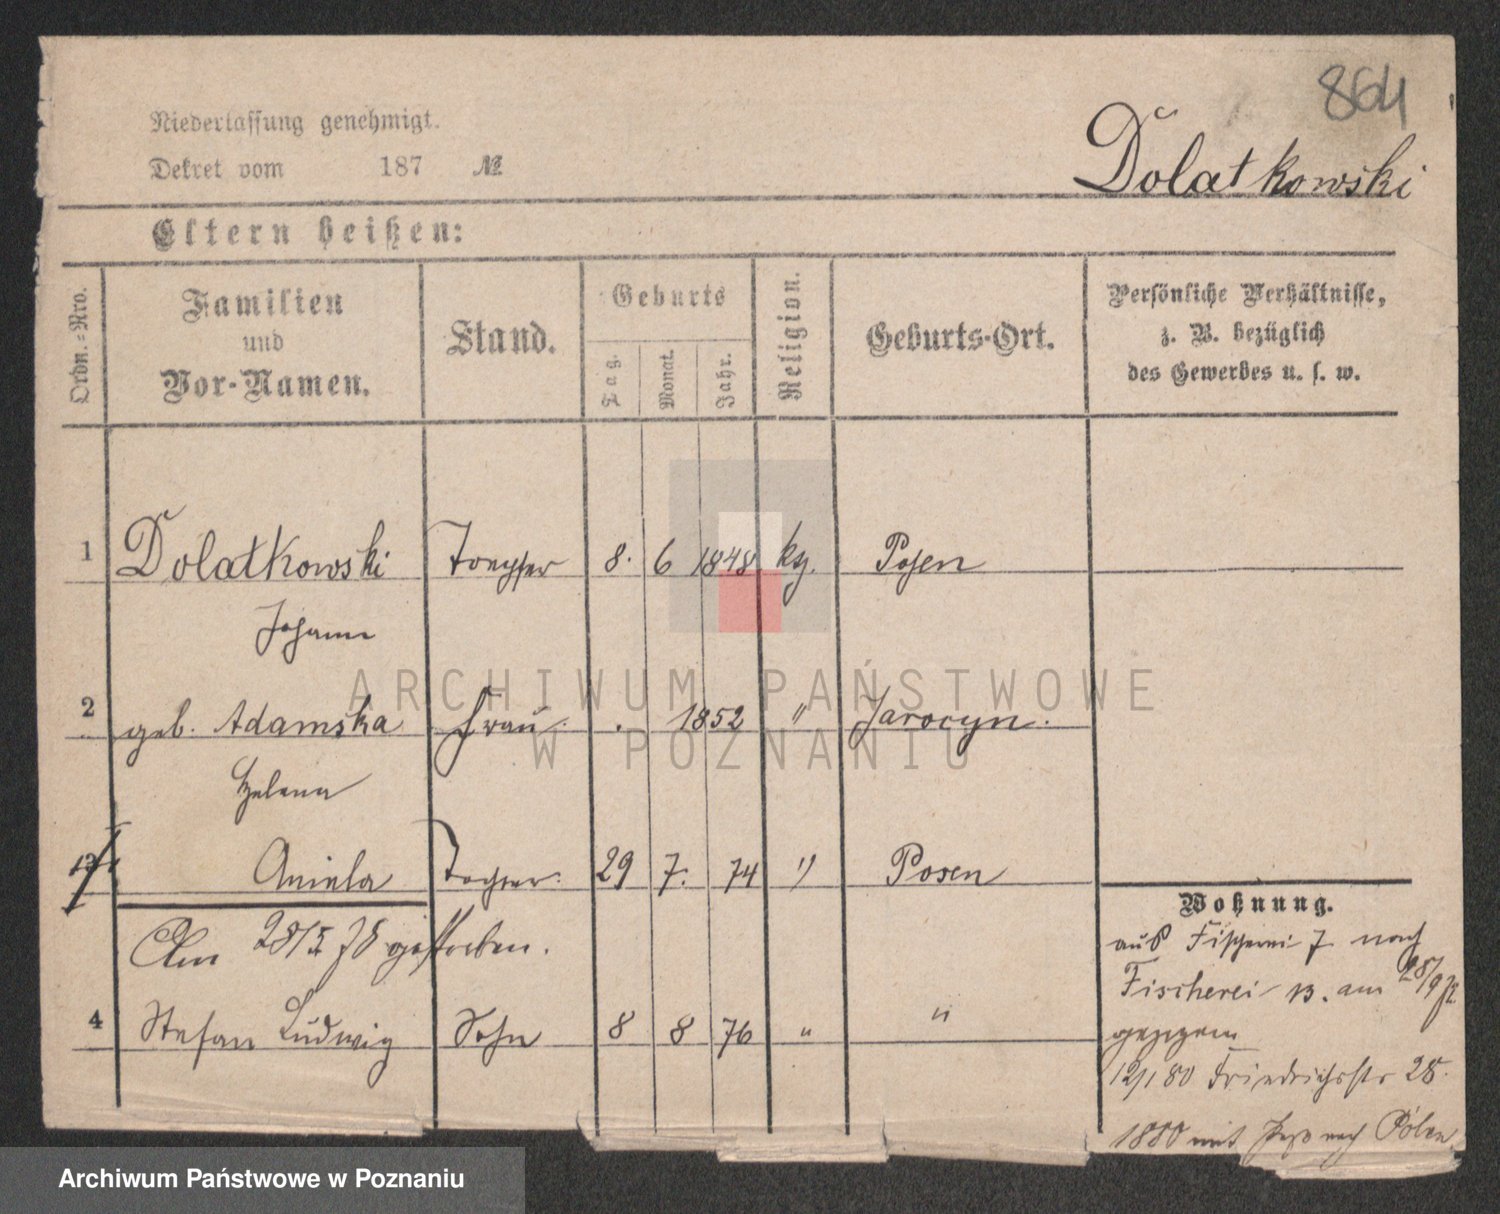 864
Niederlassung genehmigt.
Dekret vom 187 №
Dolatkowski
Eltern heißen:
Ordn.-Nro.
Familien
und
Vor-Namen.
Stand.
Geburts
Tag.
Monat.
Jahr.
Religion.
Geburts-Ort.
Persönliche Verhältnisse,
z. B. bezüglich
des Gewerbes u. s. w.
1 Dolatkowski 8. 6 1848 Posen
Johann
2 geb. Adamska Frau. 1852 " Jarocyn.
Helena
Aniela Tochter. 29 7. 74 " Posen
Am 28/5 78 gestorben.
4 Stefan Ludwig Sohn 8 8 76 " "
Wohnung.
aus Fischerei 7 nach
Fischerei 13. am 28/9 72
gezogen
12/1 80 Friedrichsstr 28.
1880 mit Paß nach Polen
ARCHIWUM PAŃSTWOWE
W POZNANIU
Archiwum Państwowe w Poznaniu